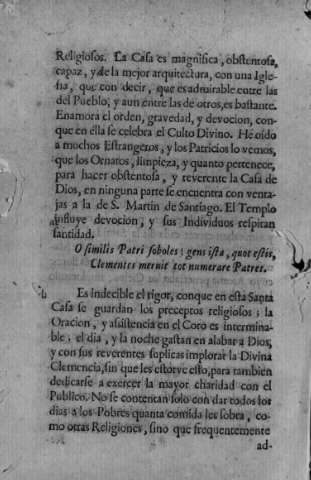 Religiosos. La Casa es magnifica, obstentosa,
capaz, y de la mejor arquitectura, con una Igle-
sia, que con decir, que es admirable entre las
del Pueblo, y aun entre las de otros, es bastante.
Enamora el orden, gravedad, y devocion, con-
que en ella se celebra el Culto Divino. He oido
a mochos Estrangeros, y los Patricios lo vemos,
que los Ornatos, limpieza, y quanto pertenece,
para hacer obstentosa, y reverente la Casa de
Dios, en ninguna parte se encuentra con venta-
jas a la de S. Martin de Santiago. El Templo
influye devocion, y sus Individuos respiran
santidad.
O similis Patri soboles; gens ista, quot estis,
Clementes meruit tot numerare Patres.
Es indecible el rigor, conque en esta Santa
Casa se guardan los preceptos religiosos; la
Oracion, y asistencia en el Coro es intermina-
ble; el dia, y la noche gastan en alabar a Dios,
y con sus reverentes suplicas implorar la Divina
Clemencia, sin que les estorve esto, para tambien
dedicarse a exercer la mayor charidad con el
Publico. No se contentan solo con dar todos los
dias a los Pobres quanta comida les sobra, co-
mo otras Religiones, sino que frequentemente
ad-